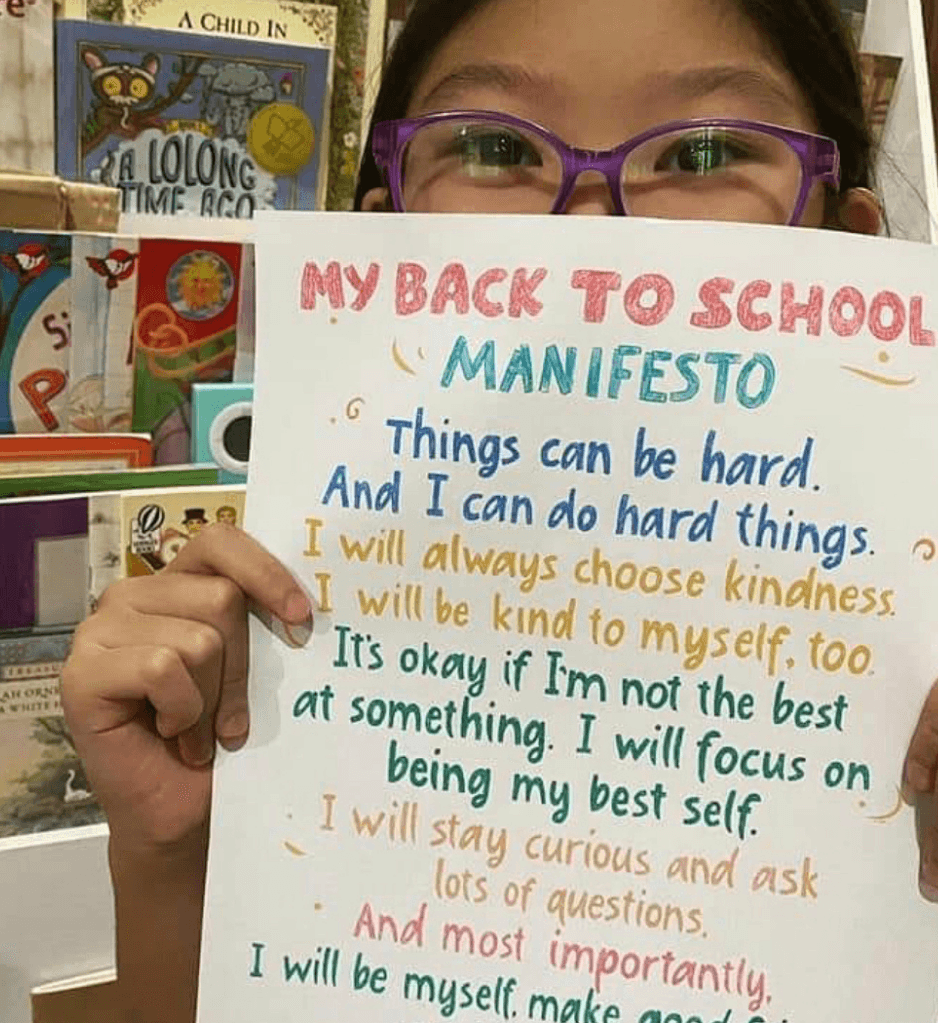 A CHILD IN
A LOLONG
TIME AGO
MY BACK TO SCHOOL
MANIFESTO
Things can be hard.
And I can do hard things.
I will always choose kindness.
I will be kind to myself, too.
It's okay if I'm not the best
at something. I will focus on
being my best self.
I will stay curious and ask
lots of questions.
And most importantly,
I will be myself, make good